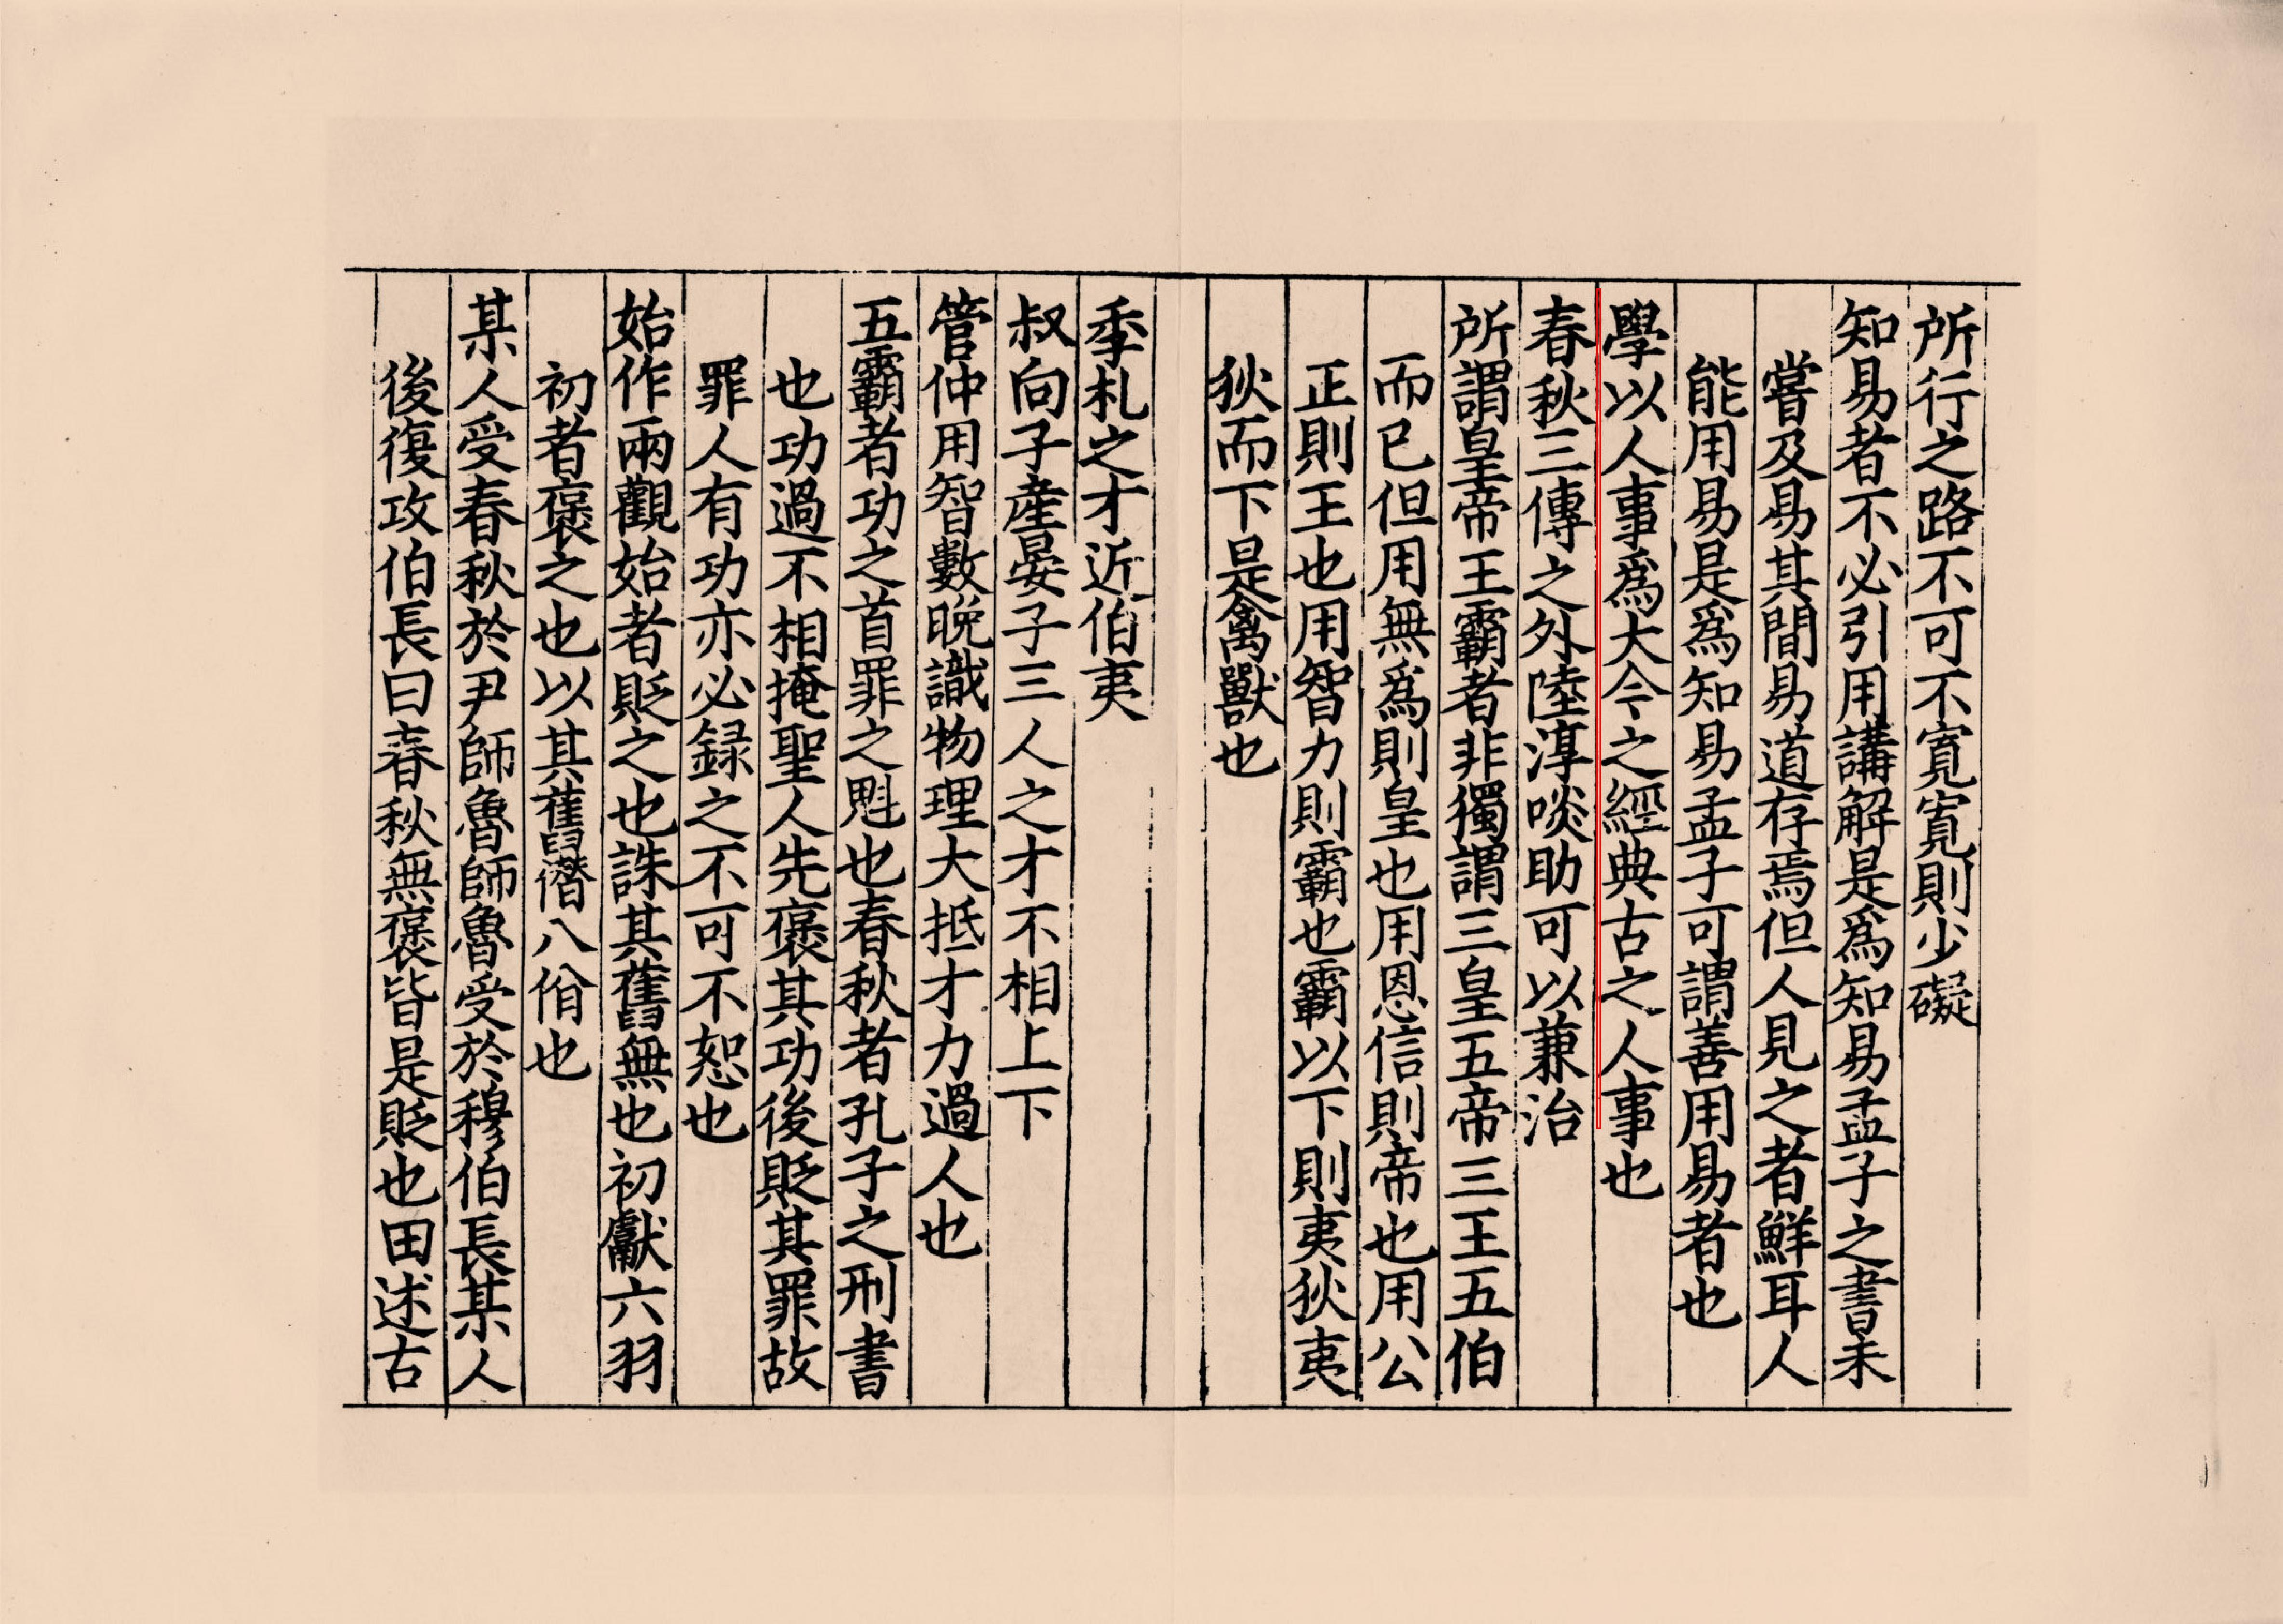 所行之路不可不寬寬則少礙
知易者不必引用講解是爲知易孟子之書未
嘗及易其間易道存焉但人見之者鮮耳人
能用易是爲知易孟子可謂善用易者也
學以人事爲大今之經典古之人事也
春秋三傳之外陸淳啖助可以兼治
所謂皇帝王霸者非獨謂三皇五帝三王五伯
而已但用無爲則皇也用恩信則帝也用公
正則王也用智力則霸也霸以下則夷狄夷
狄而下是禽獸也
季札之才近伯夷
叔向子產晏子三人之才不相上下
管仲用智數晚識物理大抵才力過人也
五霸者功之首罪之魁也春秋者孔子之刑書
也功過不相掩聖人先褒其功後貶其罪故
罪人有功亦必録之不可不恕也
始作兩觀始者貶之也誅其舊無也初獻六羽
初者褒之也以其舊僭八佾也
某人受春秋於尹師魯師魯受於穆伯長某人
後復攻伯長曰春秋無褒皆是貶也田述古